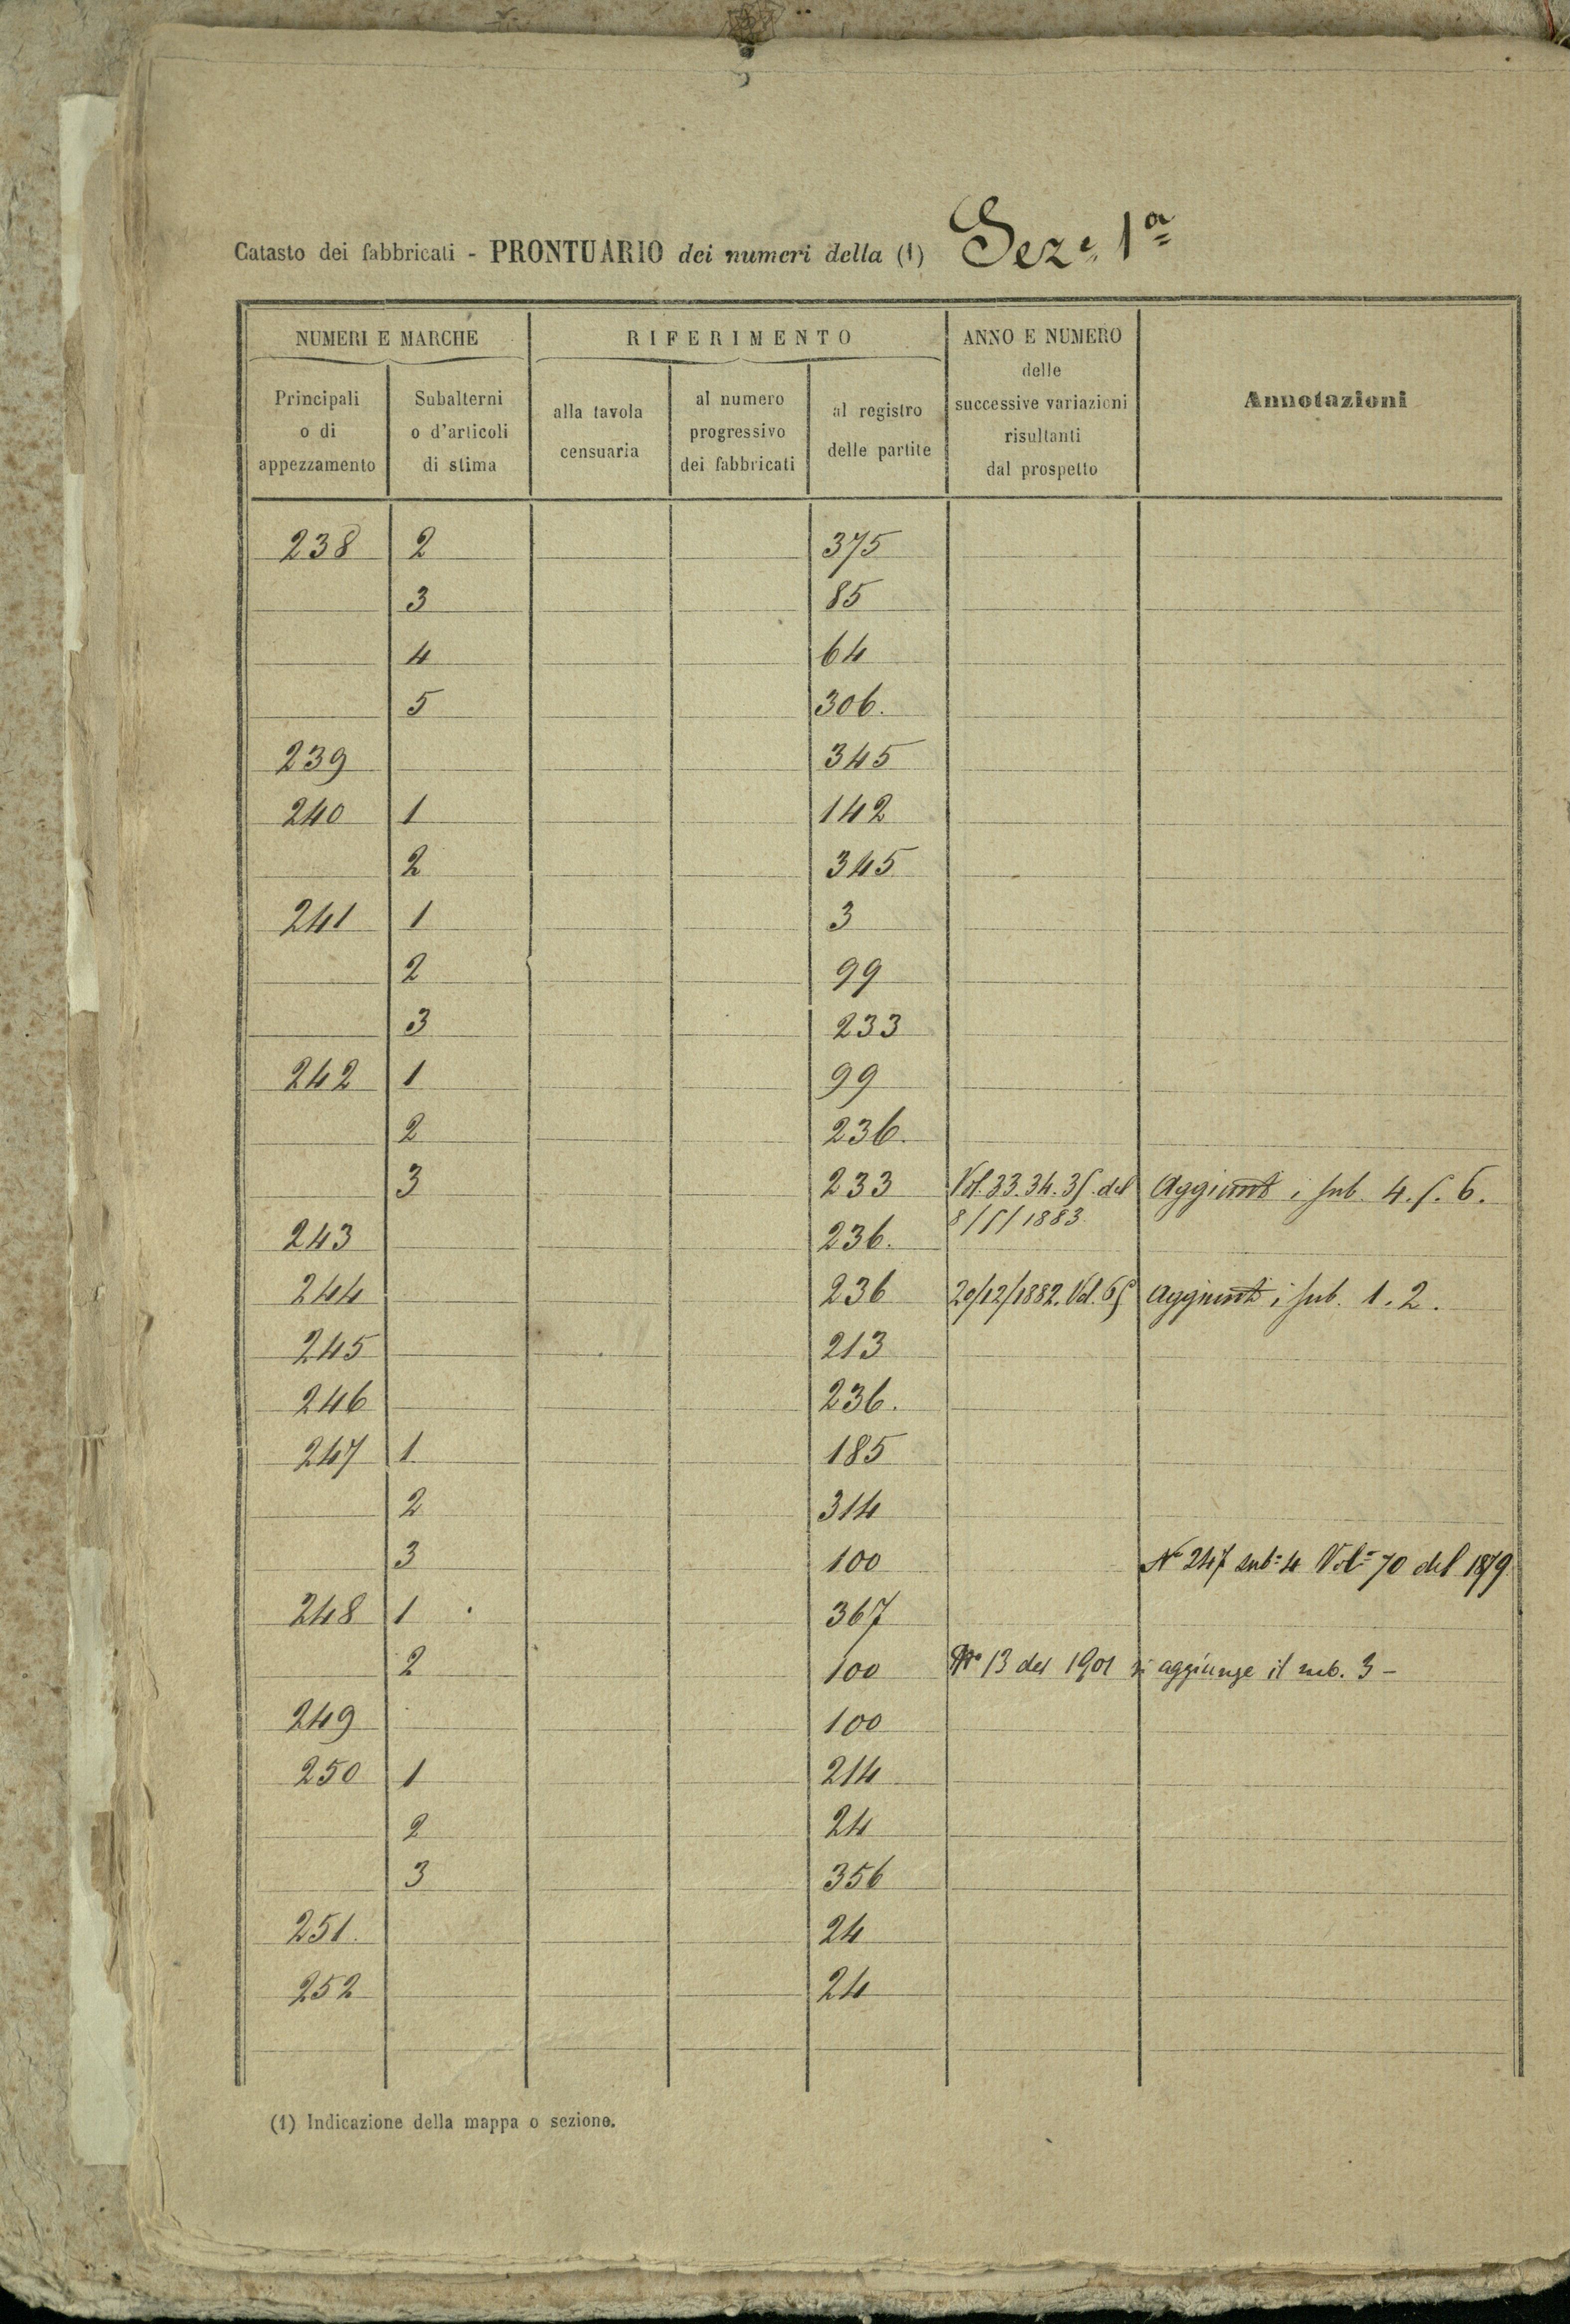 Catasto dei fabbricati - PRONTUARIO dei numeri della (1) Sez.e 1a
NUMERI E MARCHE
Principali o di appezzamento
Subalterni o d'articoli di stima
RIFERIMENTO
alla tavola censuaria
al numero progressivo dei fabbricati
al registro delle partite
ANNO E NUMERO delle successive variazioni risultanti dal prospetto
Annotazioni
238 2 375
3 85
4 64
5 306.
239 345
240 1 142
2 345
241 1 3
2 99
3 233
242 1 99
2 236.
3 233 Vol. 33. 34. 35. del Aggiunti i sub. 4. 5. 6.
8/5/1883
243 236.
244 236 20/12/1882. Vol. 65 Aggiunti i sub. 1. 2.
245 213
246 236.
247 1 185
2 314
3 100 No 247 sub: 4 Vol: 70 del 1879
248 1 367
2 100 No 13 del 1901 si aggiunge il sub. 3 -
249 100
250 1 214
2 24
3 356
251. 24
252 24
(1) Indicazione della mappa o sezione.